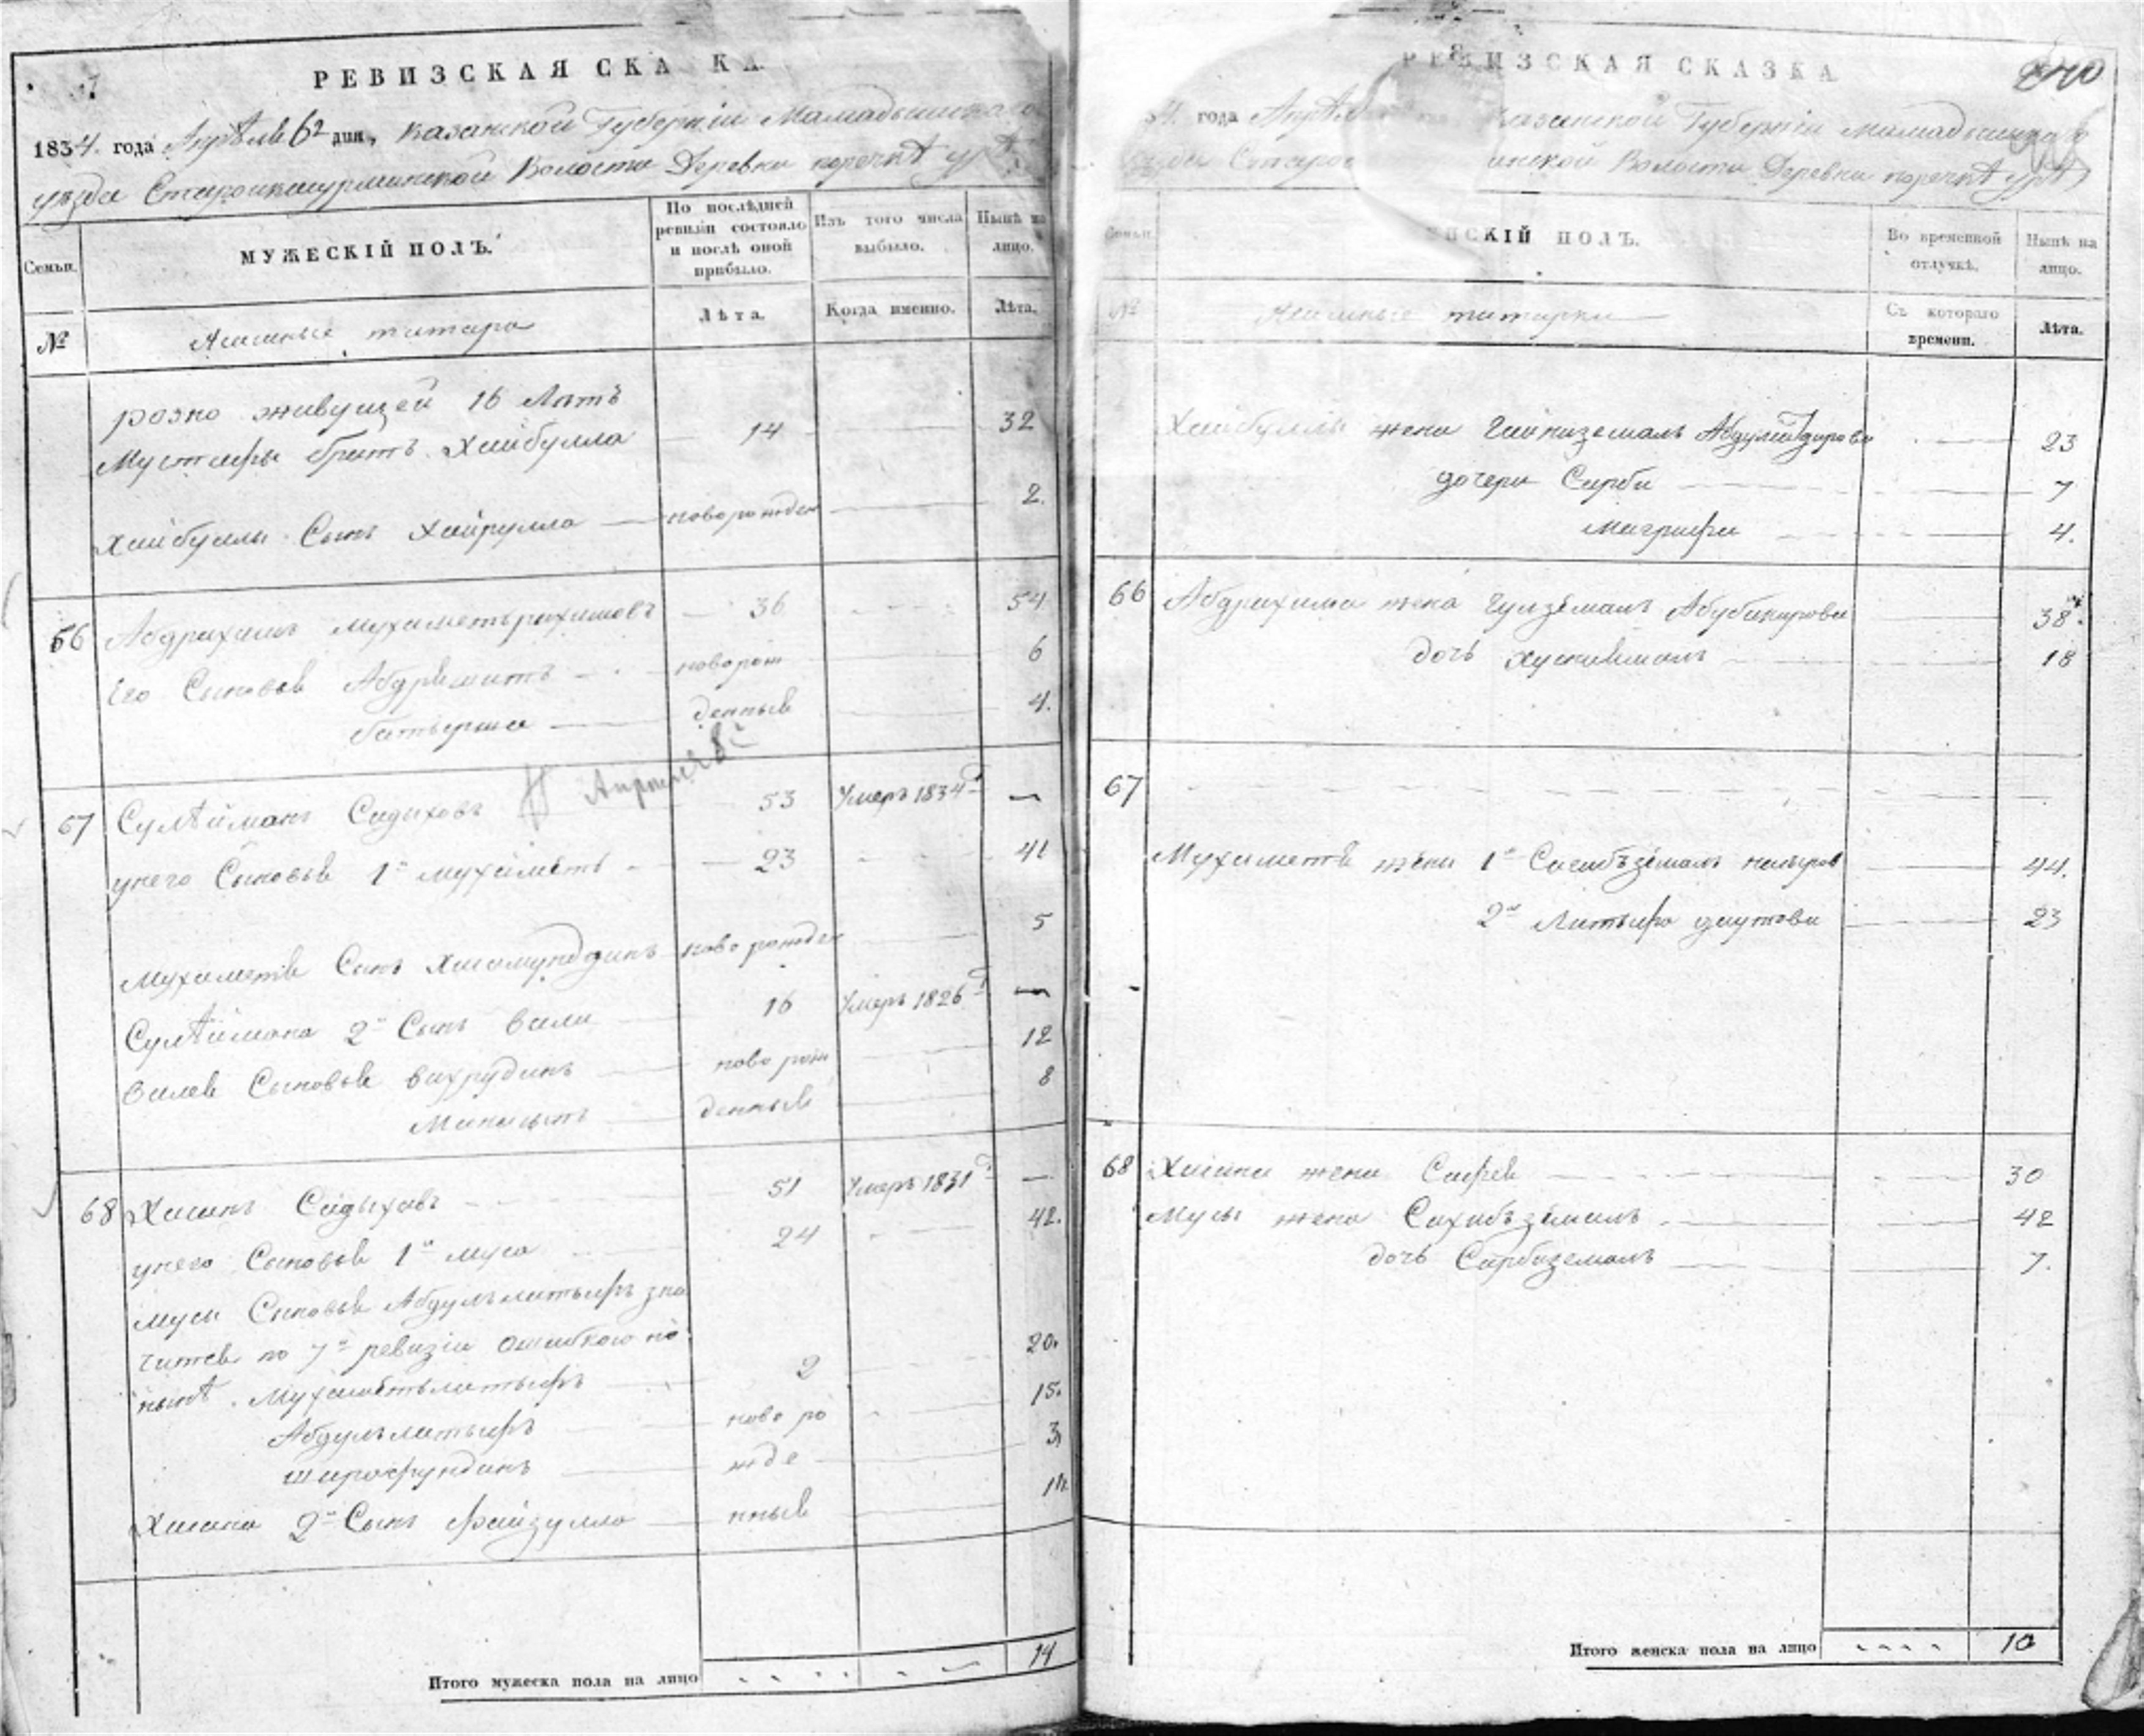 РЕВИЗСКАЯ СКА КА
1834. года Апреля 62 дня, Казанской Губерніи Мамадышскаго
уезда Староикшурминской Волости Деревни
Семьи.
МУЖЕСКІЙ ПОЛЪ.
По последней ревизіи состояло и после оной прибыло.
Изъ того числа выбыло.
Ныне на лицо.
№
Ясашные татара
Лѣта.
Когда именно.
Лѣта.
розно живущей 16 Летъ
Мустафы братъ Хайбулла 14 32
Хайбуллы Сынъ Хайрулла новорожден 2.
66 Абдрахимъ Мухаметьрахимовъ 36 54
Его Сыновья Абдряшитъ новорож 6
Батырша денныя 4.
Апреля 8
67 Сулѣйманъ Садыковъ 53 Умеръ 1834
у него Сыновья 1й Мухаметь 23 41
Мухаметя Сынъ новорожден 5
Сулѣймана 2й Сынъ Вали 16 Умеръ 1826
Валея Сыновья Вахрудинъ новорож 12
денныя 8
68 Хасанъ Садыковъ 51 Умеръ 1831
у него Сыновья 1й Муса 24 42.
Мусы Сыновья Абдулълатыфъ зна
чится по 7й ревизіи ошибкою но
нынѣ Мухаметьлатыфъ 2 20.
Абдулълатыфъ ново ро 15.
Шарафундинъ жде 3
Хасана 2й Сынъ Файзулла нныя
Итого мужеска пола на лицо 14
РЕВИЗСКАЯ СКАЗКА
года Казанской Губерніи Мамадышскаго
Волости Деревни
Семьи.
НСКІЙ ПОЛЪ.
Во временной отлучкѣ.
Нынѣ на лицо.
№
Ясашные татарки
Съ котораго времени.
Лѣта.
Хайбуллы жена 23
дочери Сарби 7
Маграфа 4.
66 Абдрахима жена Гулземалъ Абубакирова 38.
дочь 18
67
Мухаметя жены 1я 44.
2я Латыфа Даутова 23
68 Хасана жена 30
Мусы жена Сахибъземалъ 42
дочь Сарбиземалъ 7.
Итого женска пола на лицо 10